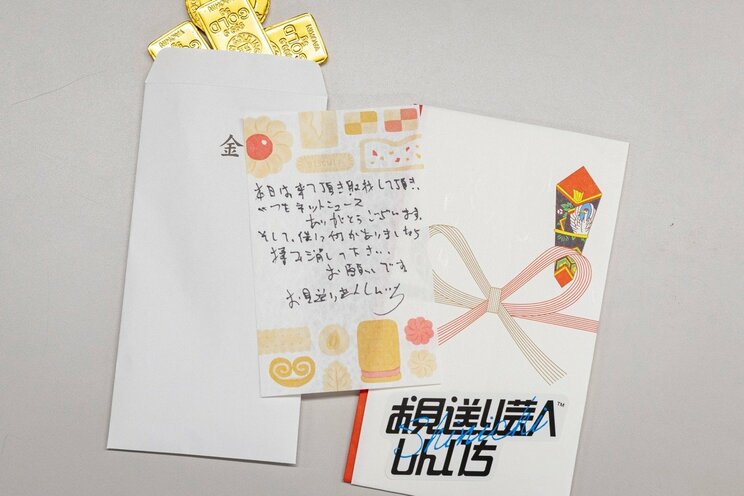 GOLD
金
BISCUIT
本日は来て頂き取材して頂き、
いつもネットニュース
ありがとうございます。
そして、僕に何かありましたら
揉み消して下さい、
お願いです
お見送り芸人しんいち
お見送り芸人™
Shinichi
しんいち